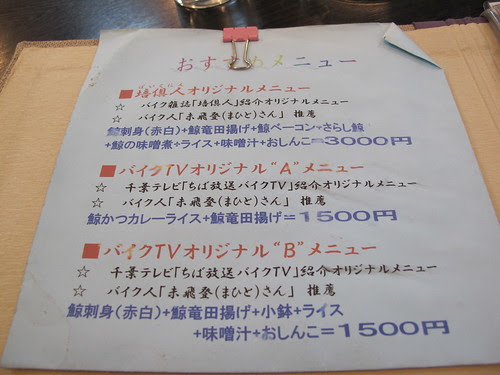 おすすめメニュー
■培倶人オリジナルメニュー
☆ バイク雑誌「培倶人」紹介オリジナルメニュー
☆ バイク人「未飛登(まひと)さん」 推薦
鯨刺身(赤白)+鯨竜田揚げ+鯨ベーコン+さらし鯨
+鯨の味噌煮+ライス+味噌汁+おしんこ=3000円
■バイクTVオリジナル"A"メニュー
☆ 千葉テレビ「ちば放送バイクTV」紹介オリジナルメニュー
☆ バイク人「未飛登(まひと)さん」 推薦
鯨かつカレーライス+鯨竜田揚げ=1500円
■バイクTVオリジナル"B"メニュー
☆ 千葉テレビ「ちば放送バイクTV」紹介オリジナルメニュー
☆ バイク人「未飛登(まひと)さん」 推薦
鯨刺身(赤白)+鯨竜田揚げ+小鉢+ライス
+味噌汁+おしんこ=1500円